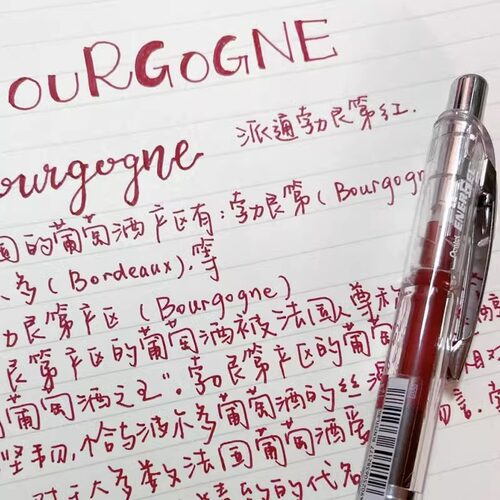 OURGOGNE
ourgogne
派通勃艮第红.
的葡萄酒产区有:勃艮第(Bourgogn
多(Bordeaux).等
艮第产区(Bourgogne)
艮第产区的葡萄酒被法国人尊
葡萄酒之王".勃艮第产区的葡萄
坚韧,恰与波尔多葡萄酒的丝
大多数法国葡萄酒
的代名
Pentel ENERGEL